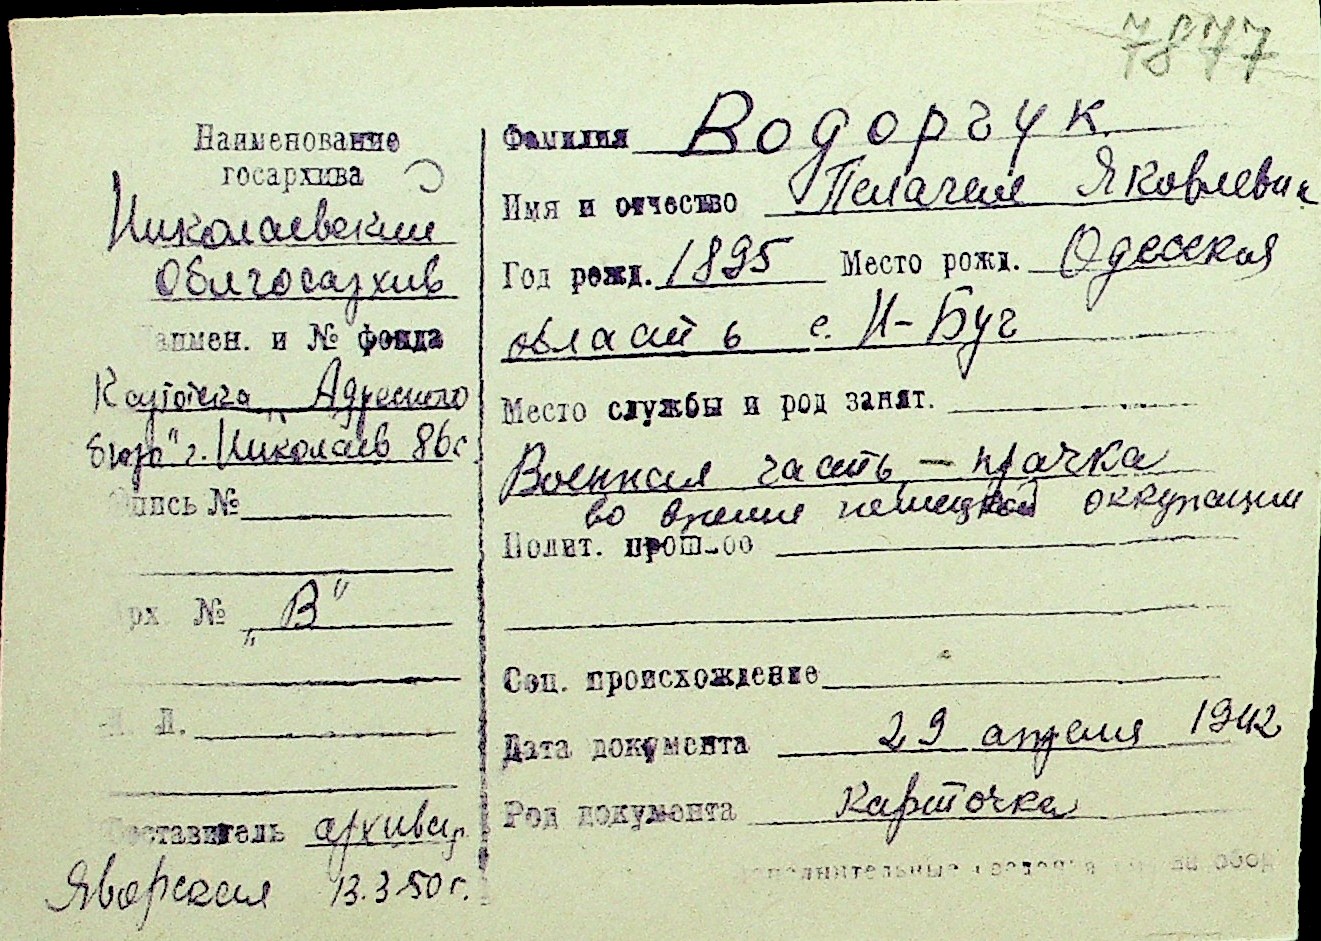 7877
Наименование
госархива
Николаевский
Облгосархив
Наимен. и № фонда
Картотека „Адресного
бюро" г. Николаев 86с
Опись №
Арх. №
„В"
К. Л.
Составитель архивар.
Яворская 13.3.50 г.
Фамилия Водорчук
Имя и отчество Пелагея Яковлевна
Год рожд. 1895 Место рожд. Одесская
область с. Н-Буг
Место службы и род занят.
Военная часть – прачка
во время немецкой оккупации
Полит. прош-ое
Соц. происхождение
Дата документа 29 апреля 1942
Род документа карточка
дополнительные сведения на обор